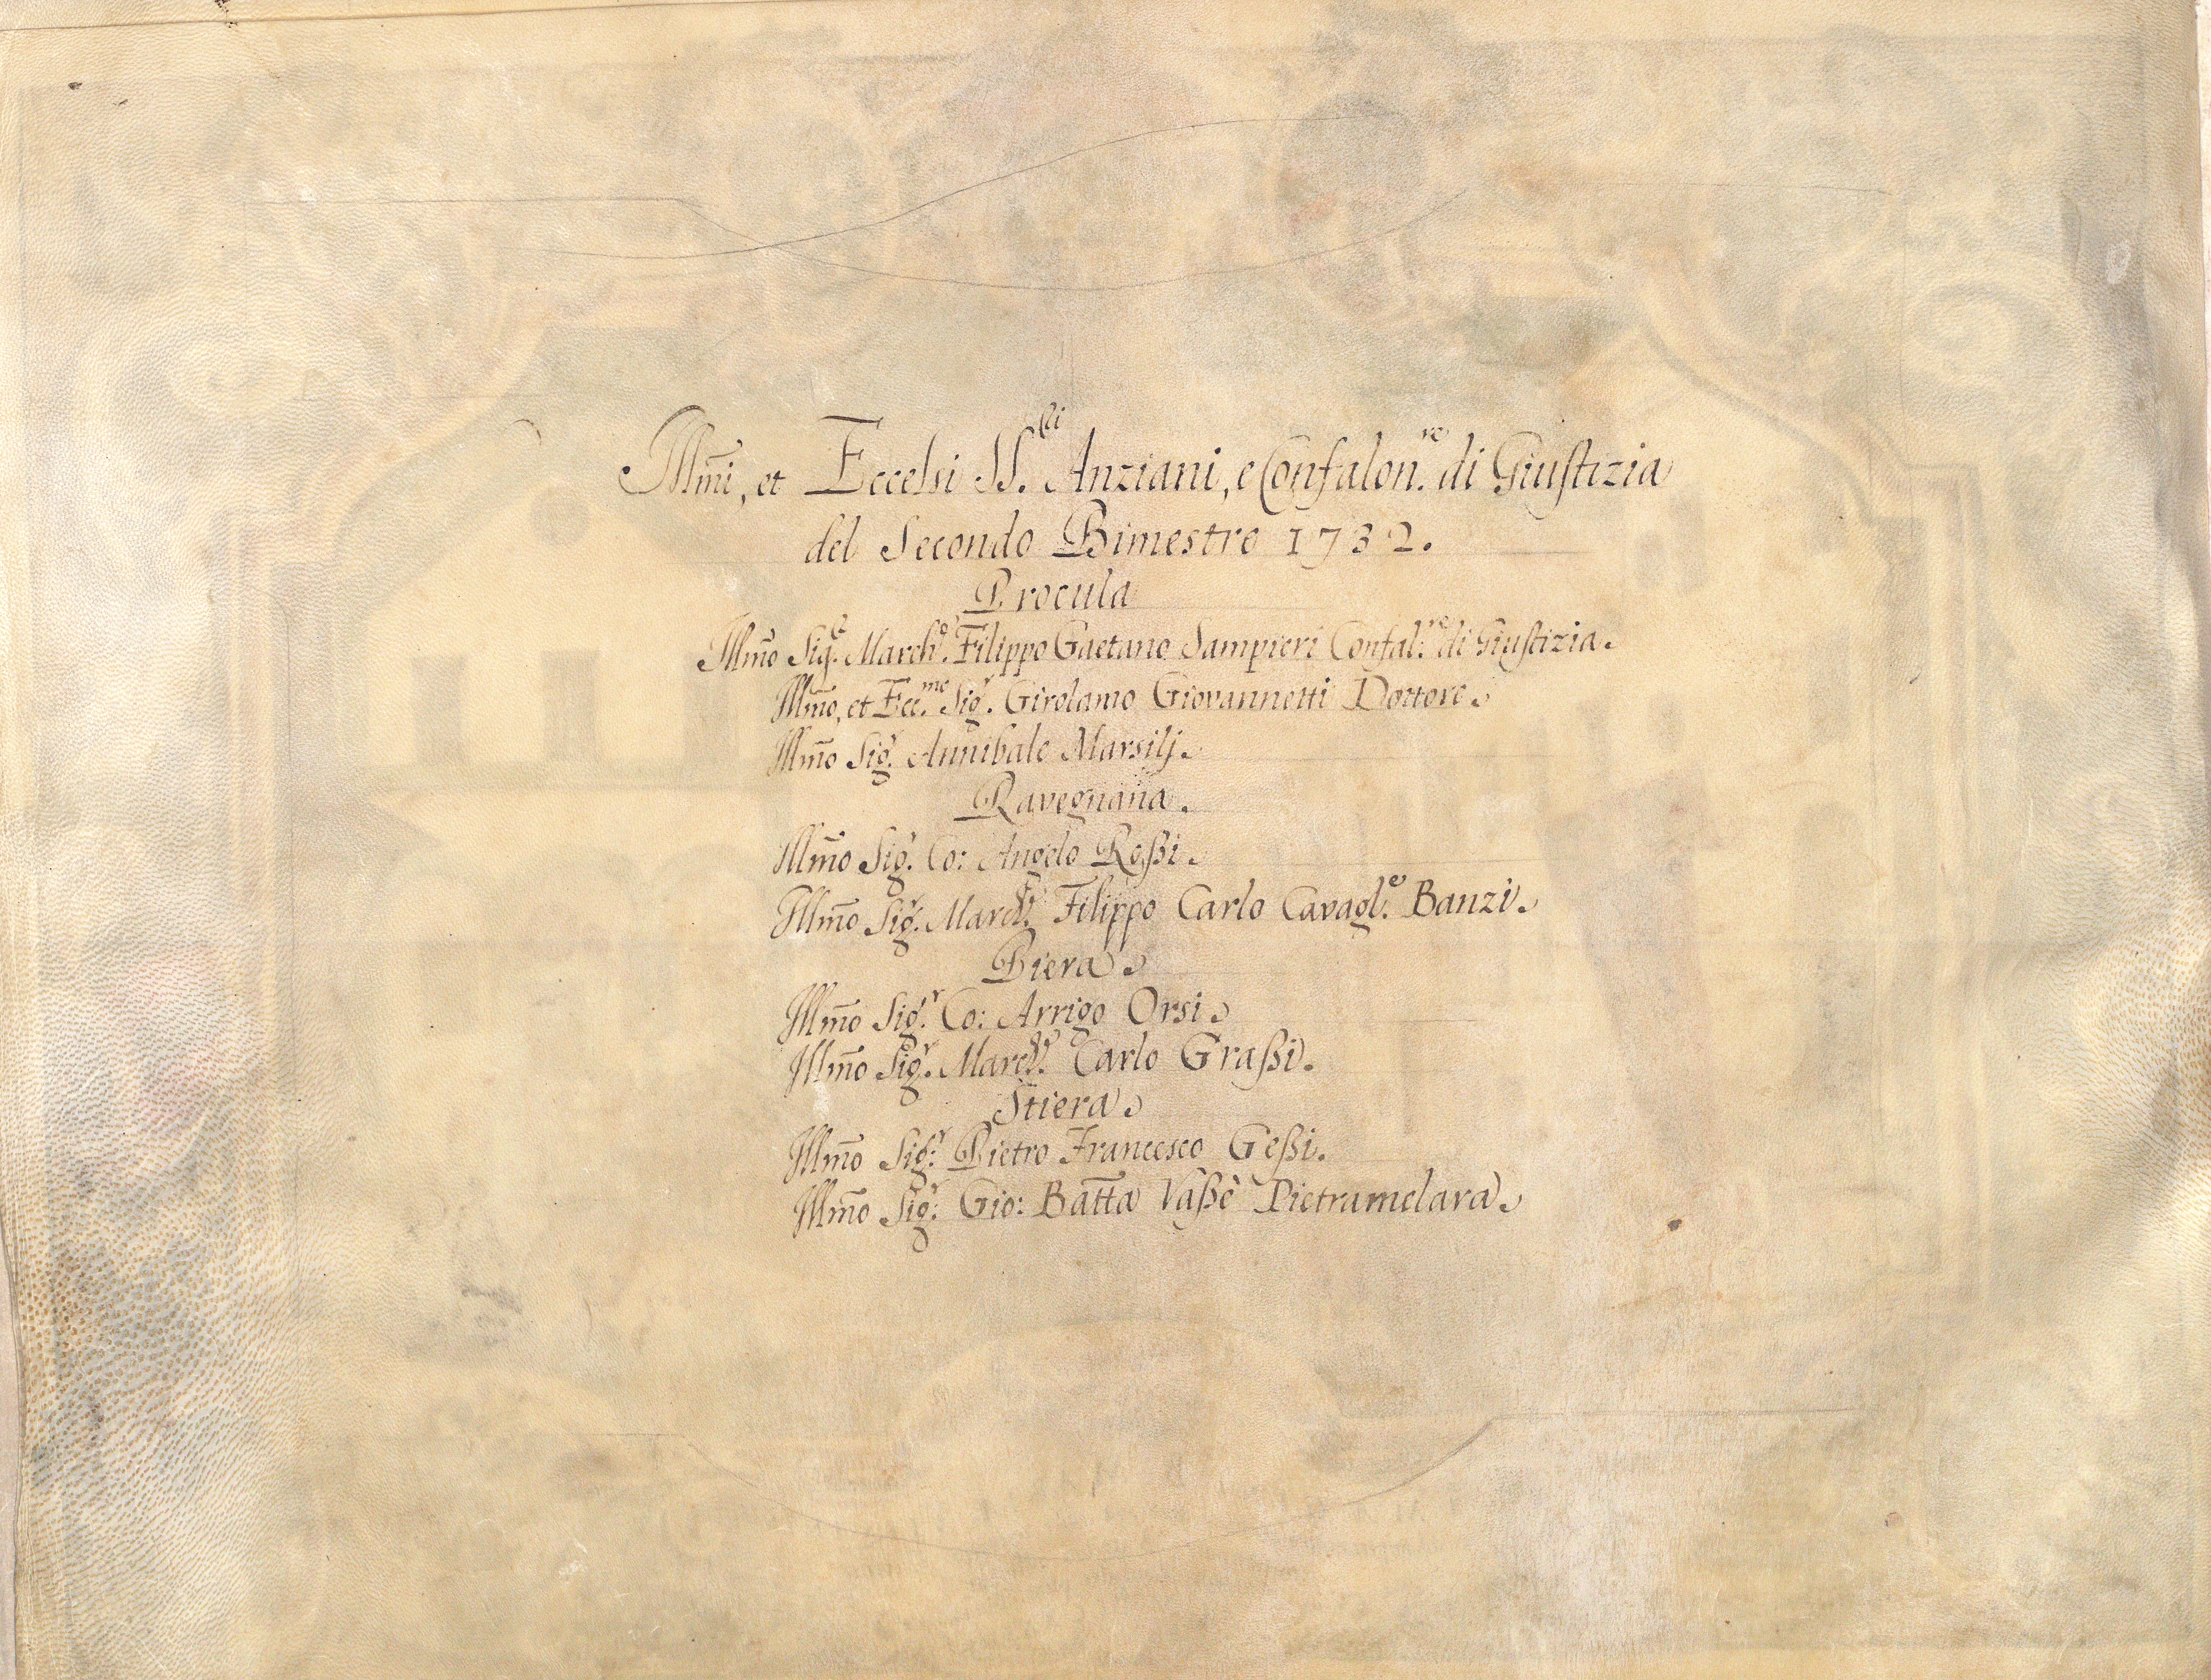 Illm̃i, et Eccelsi SS.ri Anziani, e Confalon.re di Giustizia
del Secondo Bimestre 1732.
Procula
Illm̃o Sig.r March.e Filippo Gaetano Sampieri Confal.re di Giustizia.
Illm̃o, et Ecc.mo Sig.r Girolamo Giovannetti Dottore.
Illm̃o Sig.r Annibale Marsilj.
Ravegnana.
Illm̃o Sig.r Co: Angelo Roßi.
Illm̃o Sig.r March.e Filippo Carlo Cavagl.e Banzi.
Piera.
Illm̃o Sig.r Co: Arrigo Orsi.
Illm̃o Sig.r March.e Carlo Graßi.
Stiera.
Illm̃o Sig.r Pietro Francesco Geßi.
Illm̃o Sig.r Gio: Batt̃a Vaßè Pietramelara.